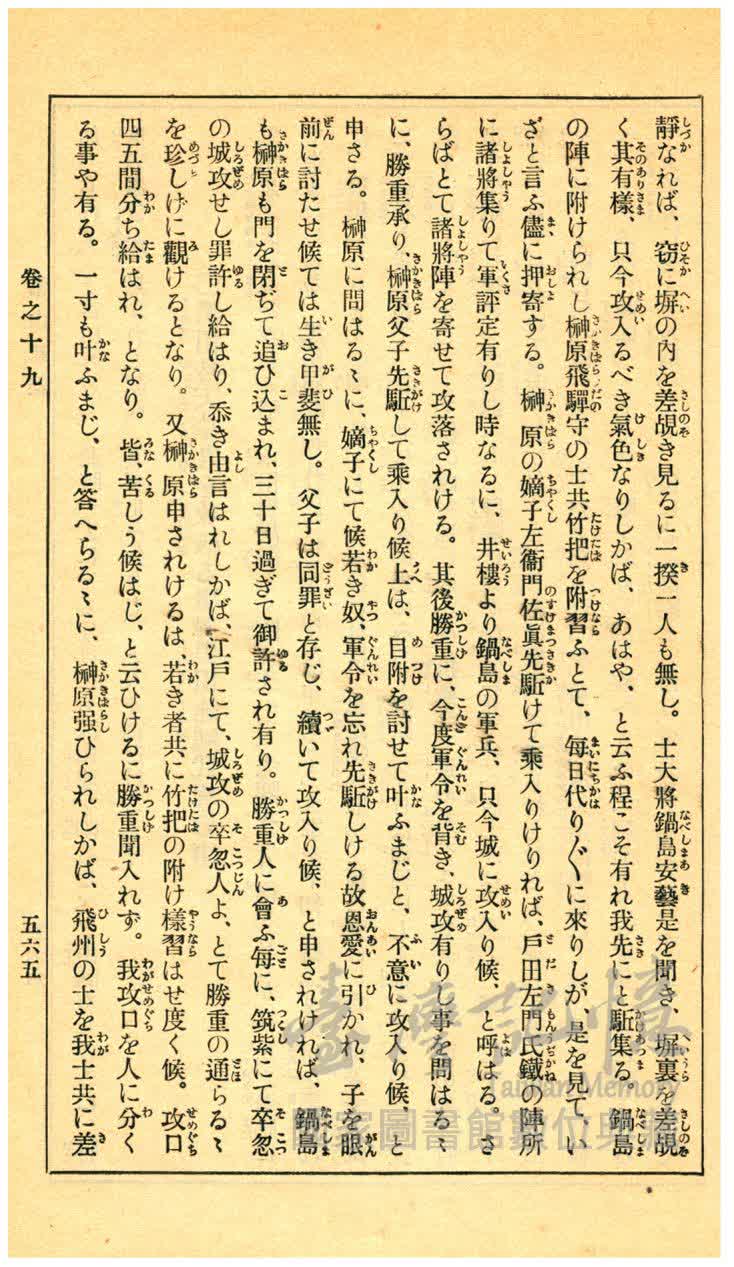 靜なれば、窃に塀の內を差覘き見るに一揆一人も無し。士大將鍋島安藝是を聞き、塀裏を差覘
く其有樣、只今攻入るべき氣色なりしかば、あはや、と云ふ程こそ有れ我先にと駈集る。鍋島
の陣に附けられし榊原飛驒守の士共竹把を附習ふとて、每日代り〲に來りしが、是を見て、い
ざと言ふ儘に押寄する。榊原の嫡子左衞門佐眞先駈けて乘入りけりれば、戶田左門氏鐵の陣所
に諸將集りて軍評定有りし時なるに、井樓より鍋島の軍兵、只今城に攻入り候、と呼はる。さ
らばとて諸將陣を寄せて攻落されける。其後勝重に、今度軍令を背き、城攻有りし事を問はるゝ
に、勝重承り、榊原父子先駈して乘入り候上は、目附を討せて叶ふまじと、不意に攻入り候、と
申さる。榊原に問はるゝに、嫡子にて候若き奴、軍令を忘れ先駈しける故恩愛に引かれ、子を眼
前に討たせ候ては生き甲斐無し。父子は同罪と存じ、續いて攻入り候、と申されければ、鍋島
も榊原も門を閉ぢて追ひ込まれ、三十日過ぎて御許され有り。勝重人に會ふ每に、筑紫にて卒忽
の城攻せし罪許し給はり、忝き由言はれしかば、江戶にて、城攻の卒忽人よ、とて勝重の通らるゝ
を珍しげに觀けるとなり。又榊原申されけるは、若き者共に竹把の附け樣習はせ度く候。攻口
四五間分ち給はれ、となり。皆、苦しう候はじ、と云ひけるに勝重聞入れず。我攻口を人に分く
る事や有る。一寸も叶ふまじ、と答へらるゝに、榊原强ひられしかば、飛州の士を我士共に差
卷之十九
五六五
臺灣記憶
Taiwan Memory
國家圖書館數位典藏